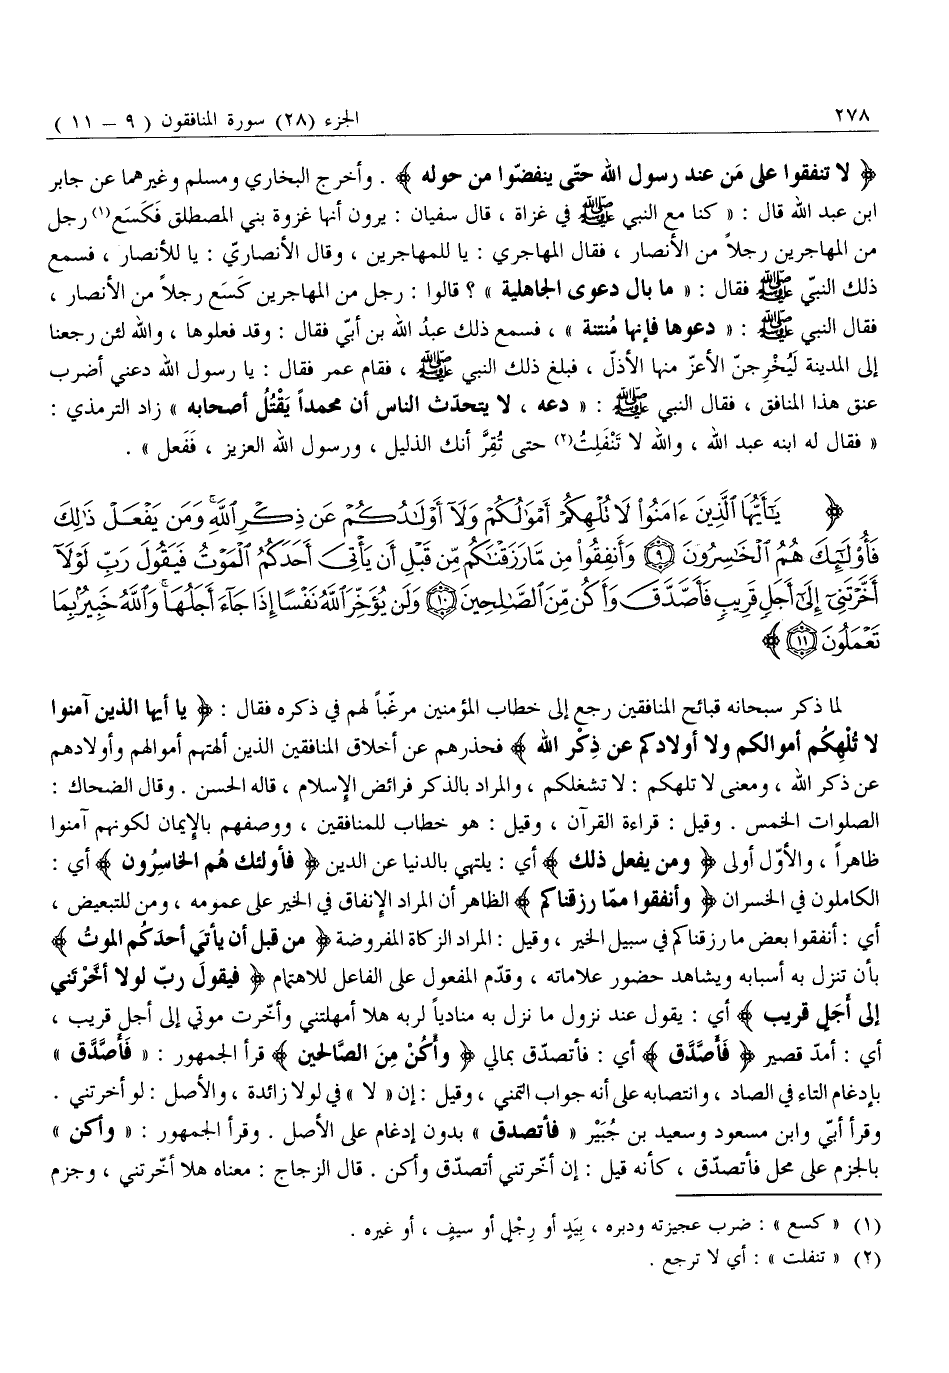 ٢٧٨
الجزء (٢٨) سورة المنافقون ( ٩ – ١١ )
﴿ لا تنفقوا على مَن عند رسول الله حتّى ينفضّوا من حوله ﴾ . وأخرج البخاري ومسلم وغيرهما عن جابر
ابن عبد الله قال : « كنا مع النبي ﷺ في غزاة ، قال سفيان : يرون أنها غزوة بني المصطلق فَكَسَع(١) رجل
من المهاجرين رجلاً من الأنصار ، فقال المهاجري : يا للمهاجرين ، وقال الأنصاريّ : يا للأنصار ، فسمع
ذلك النبيّ ﷺ فقال : « ما بال دعوى الجاهلية » ؟ قالوا : رجل من المهاجرين كَسَع رجلاً من الأنصار ،
فقال النبي ﷺ : « دعوها فإنها مُنتنة » ، فسمع ذلك عبدُ الله بن أبيّ فقال : وقد فعلوها ، والله لئن رجعنا
إلى المدينة لَيُخْرِجنّ الأعزّ منها الأذلّ ، فبلغ ذلك النبي ﷺ ، فقام عمر فقال : يا رسول الله دعني أضرب
عنق هذا المنافق ، فقال النبي ﷺ : « دعه ، لا يتحدّث الناس أن محمداً يَقْتُلُ أصحابه » زاد الترمذي :
« فقال له ابنه عبد الله ، والله لا تَنْفَلِتُ(٢) حتى تُقِرَّ أنك الذليل ، ورسول الله العزيز ، فَفَعل » .
﴿ يَٰٓأَيُّهَا ٱلَّذِينَ ءَامَنُوا۟ لَا تُلْهِكُمْ أَمْوَٰلُكُمْ وَلَآ أَوْلَٰدُكُمْ عَن ذِكْرِ ٱللَّهِ ۚ وَمَن يَفْعَلْ ذَٰلِكَ
فَأُو۟لَٰٓئِكَ هُمُ ٱلْخَٰسِرُونَ ۝٩ وَأَنفِقُوا۟ مِن مَّا رَزَقْنَٰكُم مِّن قَبْلِ أَن يَأْتِىَ أَحَدَكُمُ ٱلْمَوْتُ فَيَقُولَ رَبِّ لَوْلَآ
أَخَّرْتَنِىٓ إِلَىٰٓ أَجَلٍ قَرِيبٍ فَأَصَّدَّقَ وَأَكُن مِّنَ ٱلصَّٰلِحِينَ ۝١٠ وَلَن يُؤَخِّرَ ٱللَّهُ نَفْسًا إِذَا جَآءَ أَجَلُهَا ۚ وَٱللَّهُ خَبِيرٌۢ بِمَا
تَعْمَلُونَ ۝١١ ﴾
لما ذكر سبحانه قبائح المنافقين رجع إلى خطاب المؤمنين مرغّباً لهم في ذكره فقال : ﴿ يا أيها الذين آمنوا
لا تُلْهِكُم أموالكم ولا أولادكم عن ذِكْر الله ﴾ فحذرهم عن أخلاق المنافقين الذين ألهتهم أموالهم وأولادهم
عن ذكر الله ، ومعنى لا تلهكم : لا تشغلكم ، والمراد بالذكر فرائض الإِسلام ، قاله الحسن . وقال الضحاك :
الصلوات الخمس . وقيل : قراءة القرآن ، وقيل : هو خطاب للمنافقين ، ووصفهم بالإِيمان لكونهم آمنوا
ظاهراً ، والأوّل أولى ﴿ ومن يفعل ذلك ﴾ أي : يلتهي بالدنيا عن الدين ﴿ فأولئك هُم الخاسِرُون ﴾ أي :
الكاملون في الخسران ﴿ وأنفقوا ممّا رزقناكم ﴾ الظاهر أن المراد الإِنفاق في الخير على عمومه ، ومن للتبعيض ،
أي : أنفقوا بعض ما رزقناكم في سبيل الخير ، وقيل : المراد الزكاة المفروضة ﴿ من قبل أن يأتيَ أحدَكُم الموتُ ﴾
بأن تنزل به أسبابه ويشاهد حضور علاماته ، وقدّم المفعول على الفاعل للاهتمام ﴿ فيقولَ ربّ لولا أخّرْتَني
إلى أَجَلٍ قريب ﴾ أي : يقول عند نزول ما نزل به منادياً لربه هلا أمهلتني وأخّرت موتي إلى أجل قريب ،
أي : أمدّ قصير ﴿ فَأَصَّدَّق ﴾ أي : فأتصدّق بمالي ﴿ وأَكُنْ مِنَ الصَّالحين ﴾ قرأ الجمهور : « فَأَصَّدَّق »
بإدغام التاء في الصاد ، وانتصابه على أنه جواب التمني ، وقيل : إن « لا » في لولا زائدة ، والأصل : لو أخرتني .
وقرأ أبيّ وابن مسعود وسعيد بن جُبَيْر « فأتصدق » بدون إدغام على الأصل . وقرأ الجمهور : « وأكن »
بالجزم على محل فأتصدّق ، كأنه قيل : إن أخّرتني أتصدّق وأكن . قال الزجاج : معناه هلا أخّرتني ، وجزم
(١) « كسع » : ضرب عجيزته ودبره ، بِيَدٍ أو رِجْلٍ أو سيفٍ ، أو غيره .
(٢) « تنفلت » : أي لا ترجع .